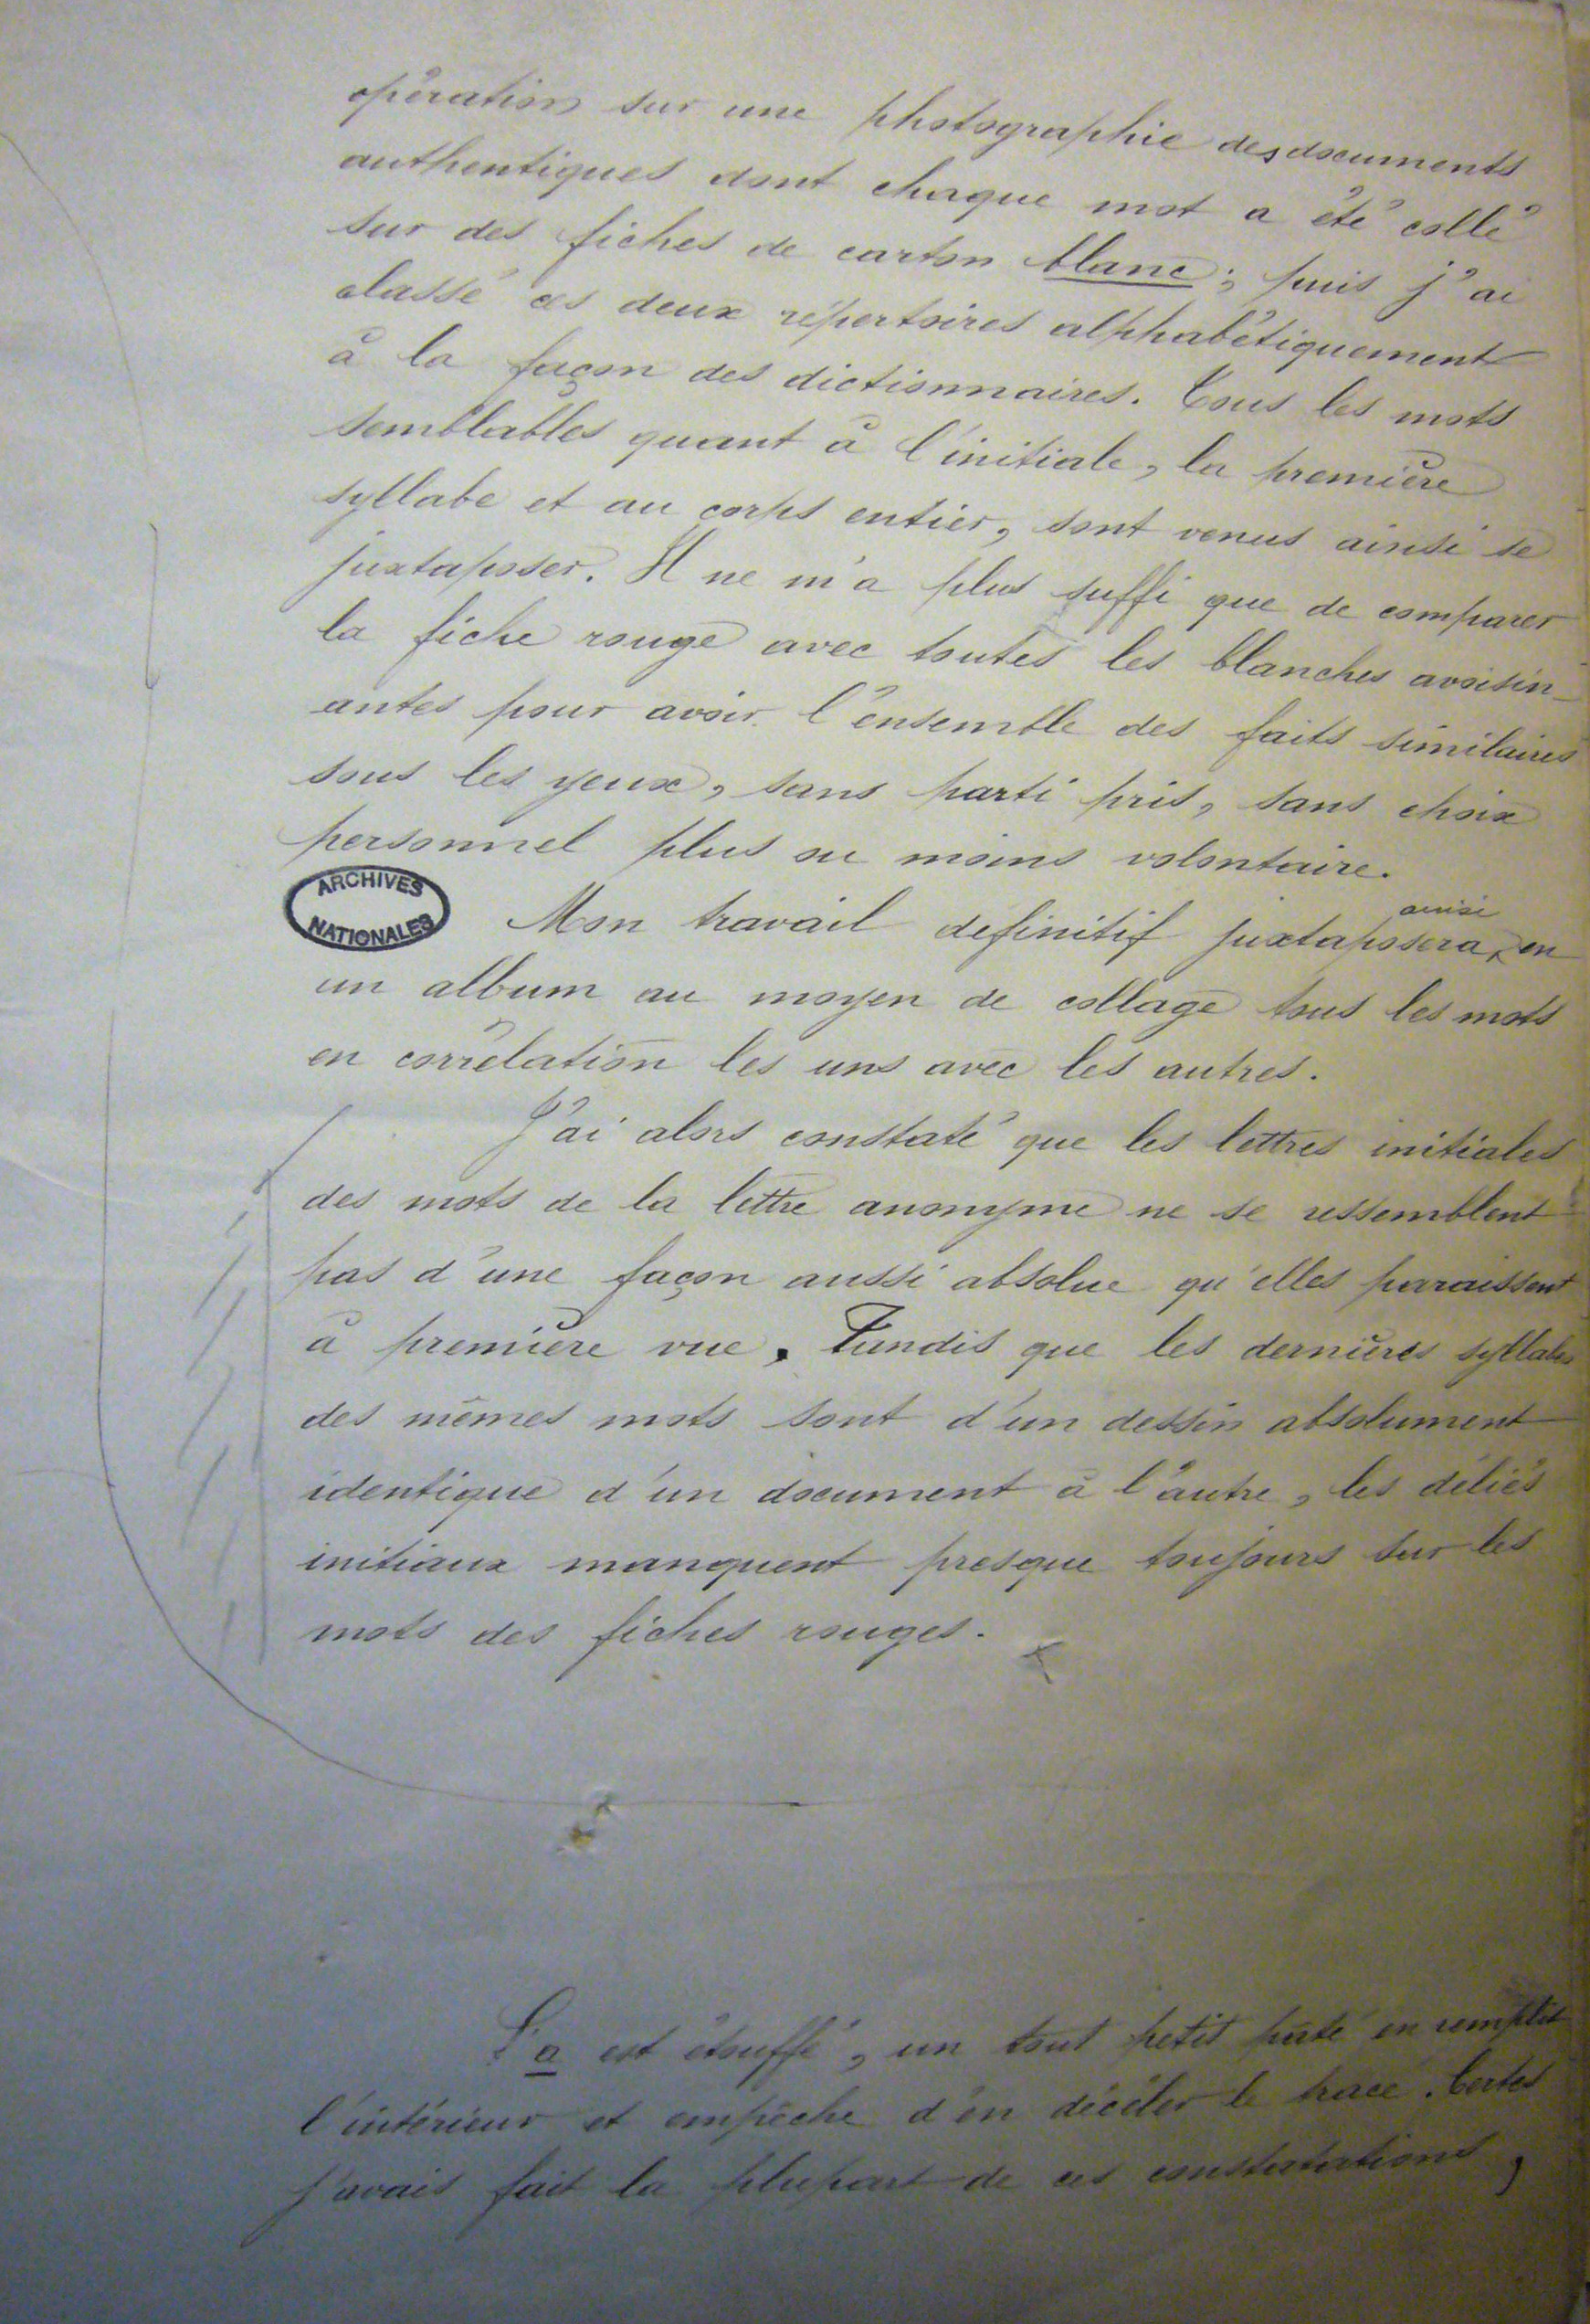 opération sur une photographie des documents
authentiques dont chaque mot a été collé
sur des fiches de carton blanc ; puis j'ai
classé ces deux répertoires alphabétiquement
à la façon des dictionnaires. Tous les mots
semblables quant à l'initiale, la première
syllabe et au corps entier, sont venus ainsi se
juxtaposer. Il ne m'a plus suffi que de comparer
la fiche rouge avec toutes les blanches avoisin-
antes pour avoir l'ensemble des faits similaires
sous les yeux, sans parti pris, sans choix
personnel plus ou moins volontaire.
ARCHIVES
NATIONALES
ainsi
Mon travail définitif juxtaposera, en
un album au moyen de collage tous les mots
en corrélation les uns avec les autres.
J'ai alors constaté que les lettres initiales
des mots de la lettre anonyme ne se ressemblent
pas d'une façon aussi absolue qu'elles paraissent
à première vue. Tandis que les dernières syllabes
des mêmes mots sont d'un dessin absolument
identique d'un document à l'autre, les déliés
initiaux manquent presque toujours sur les
mots des fiches rouges.
L'a est étouffé, un tout petit pâté en remplit
l'intérieur et empêche d'en décéler le tracé. Certes
j'avais fait la plupart de ces constatations,